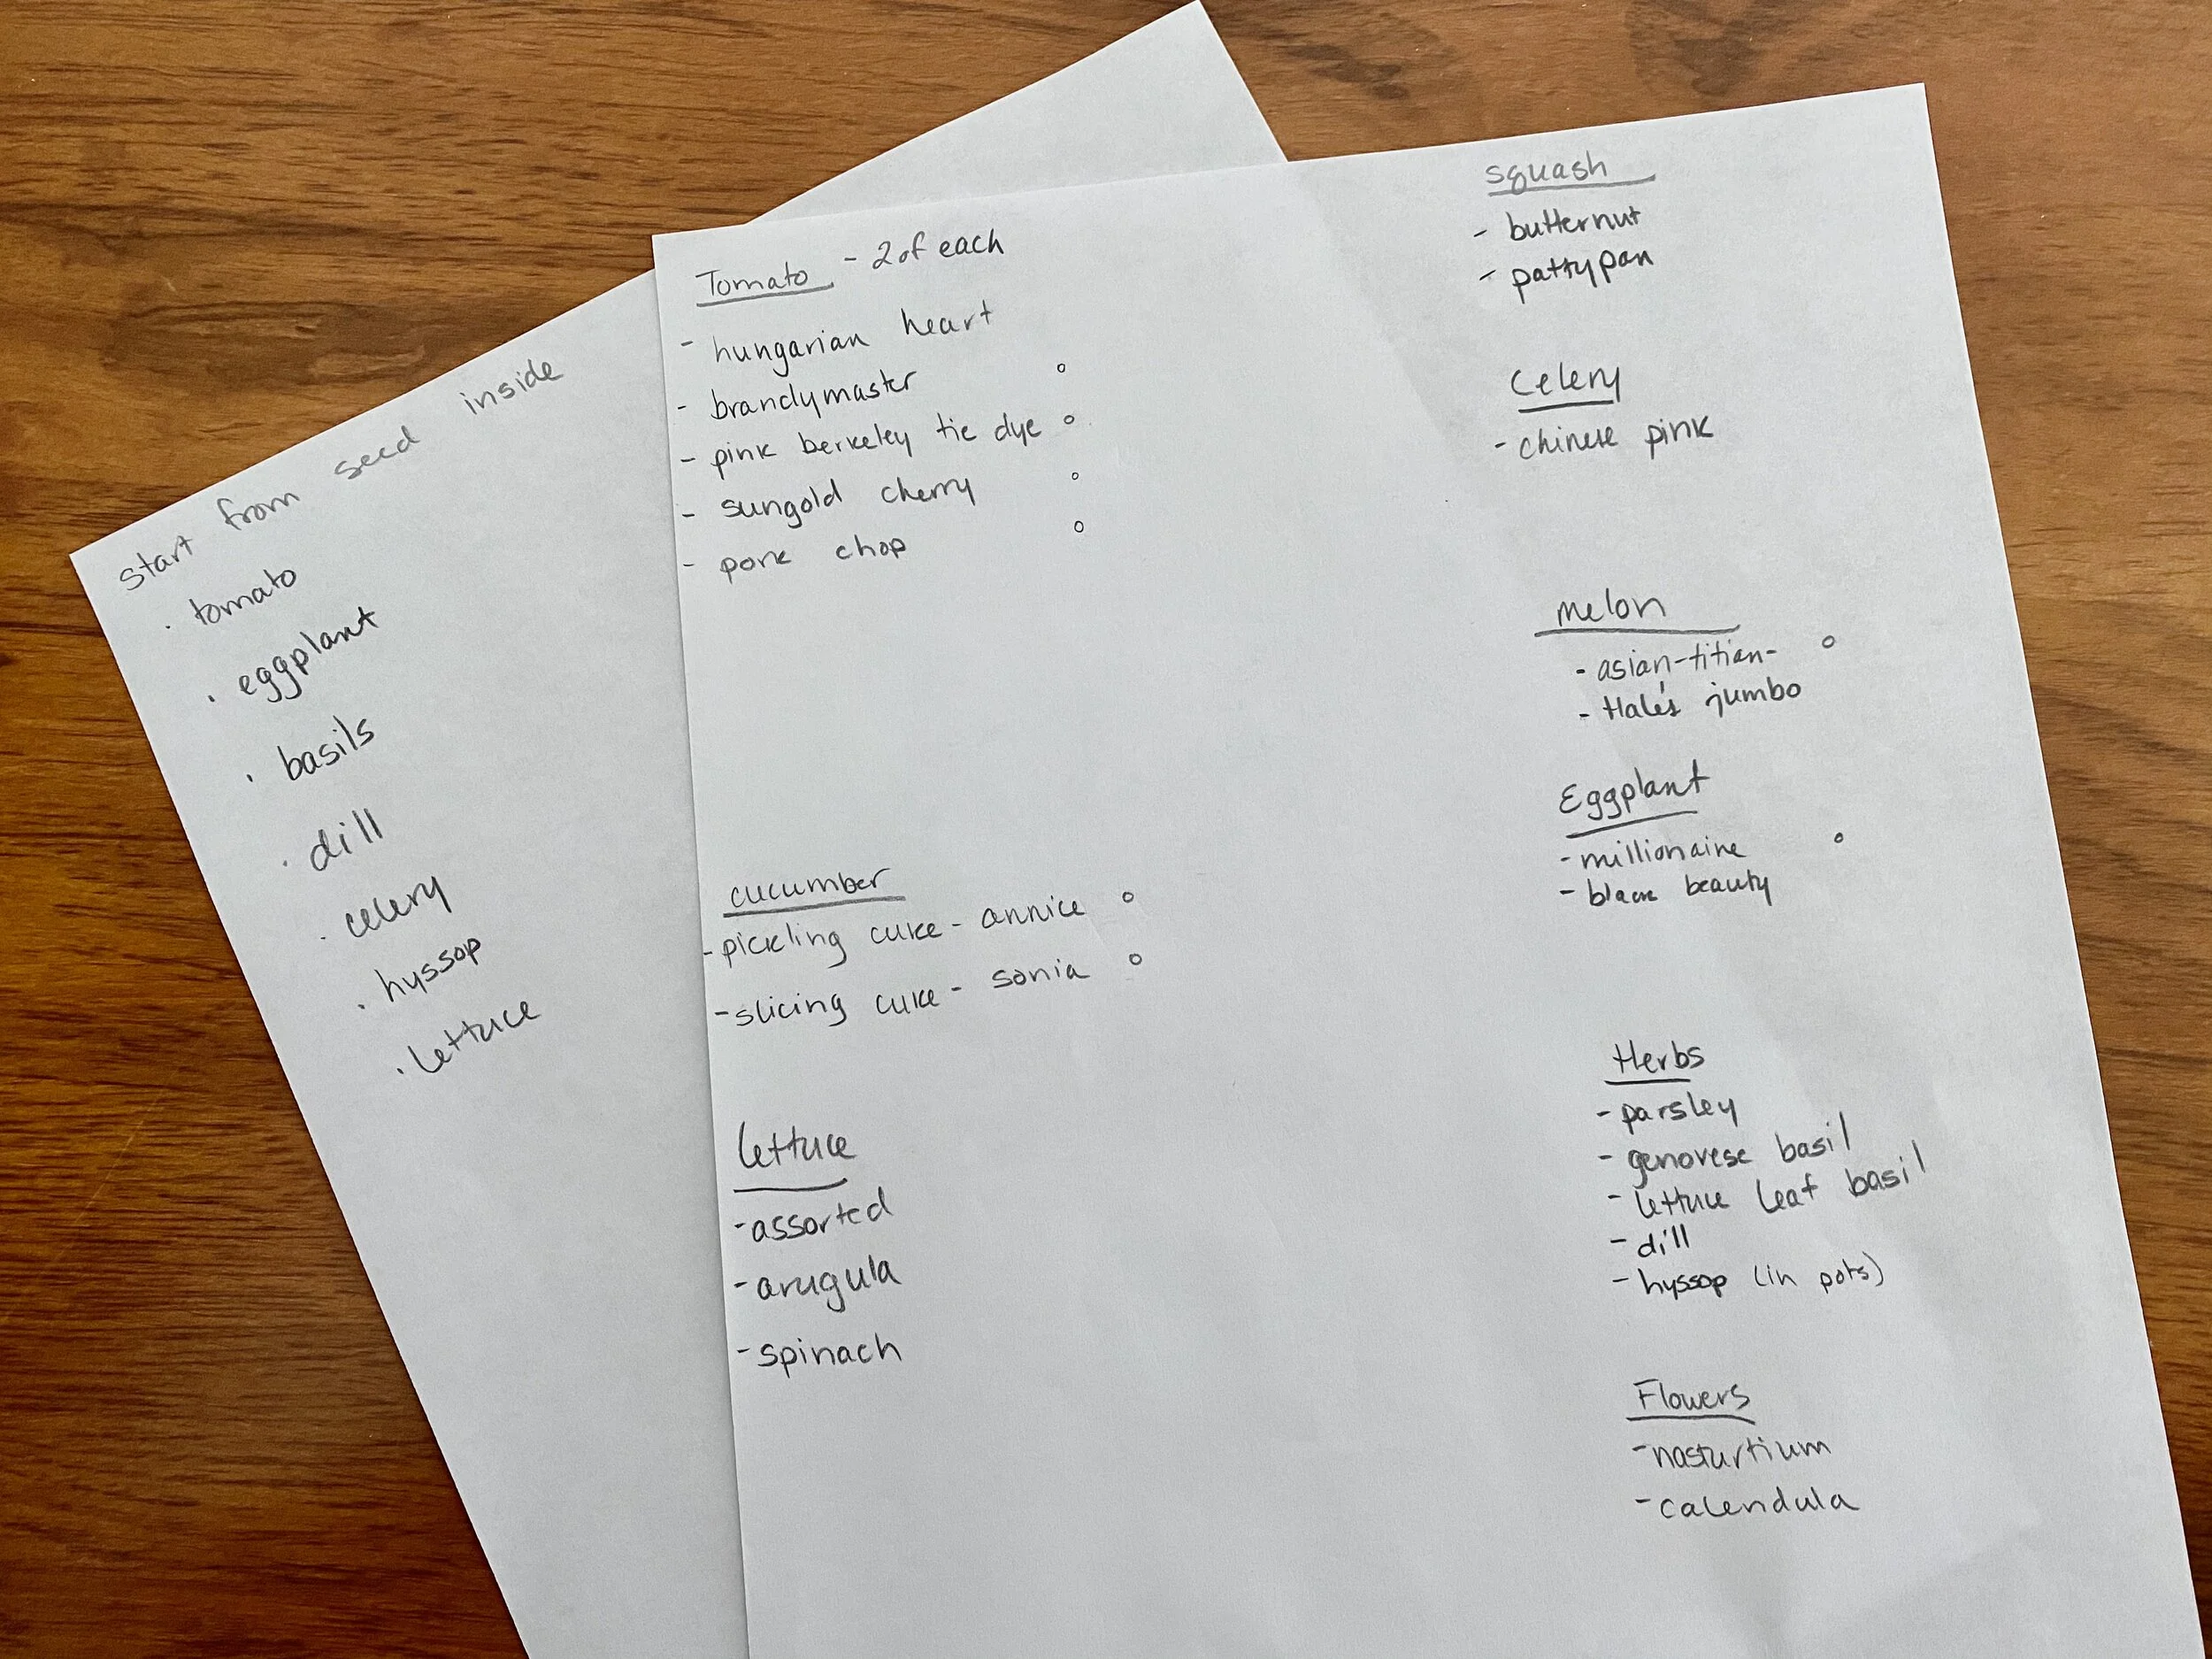 start from seed inside
· tomato
· eggplant
· basils
· dill
· celery
· hyssop
· lettuce
Tomato - 2 of each
- hungarian heart
- brandymaster
- pink berkeley tie dye
- sungold cherry
- pork chop
cucumber
- pickling cuke - annice
- slicing cuke - sonia
lettuce
- assorted
- arugula
- spinach
squash
- butternut
- pattypan
Celery
- chinese pink
melon
- asian-titian-
- Hale's jumbo
Eggplant
- millionaire
- black beauty
Herbs
- parsley
- genovese basil
- lettuce leaf basil
- dill
- hyssop (in pots)
Flowers
- nasturtium
- calendula